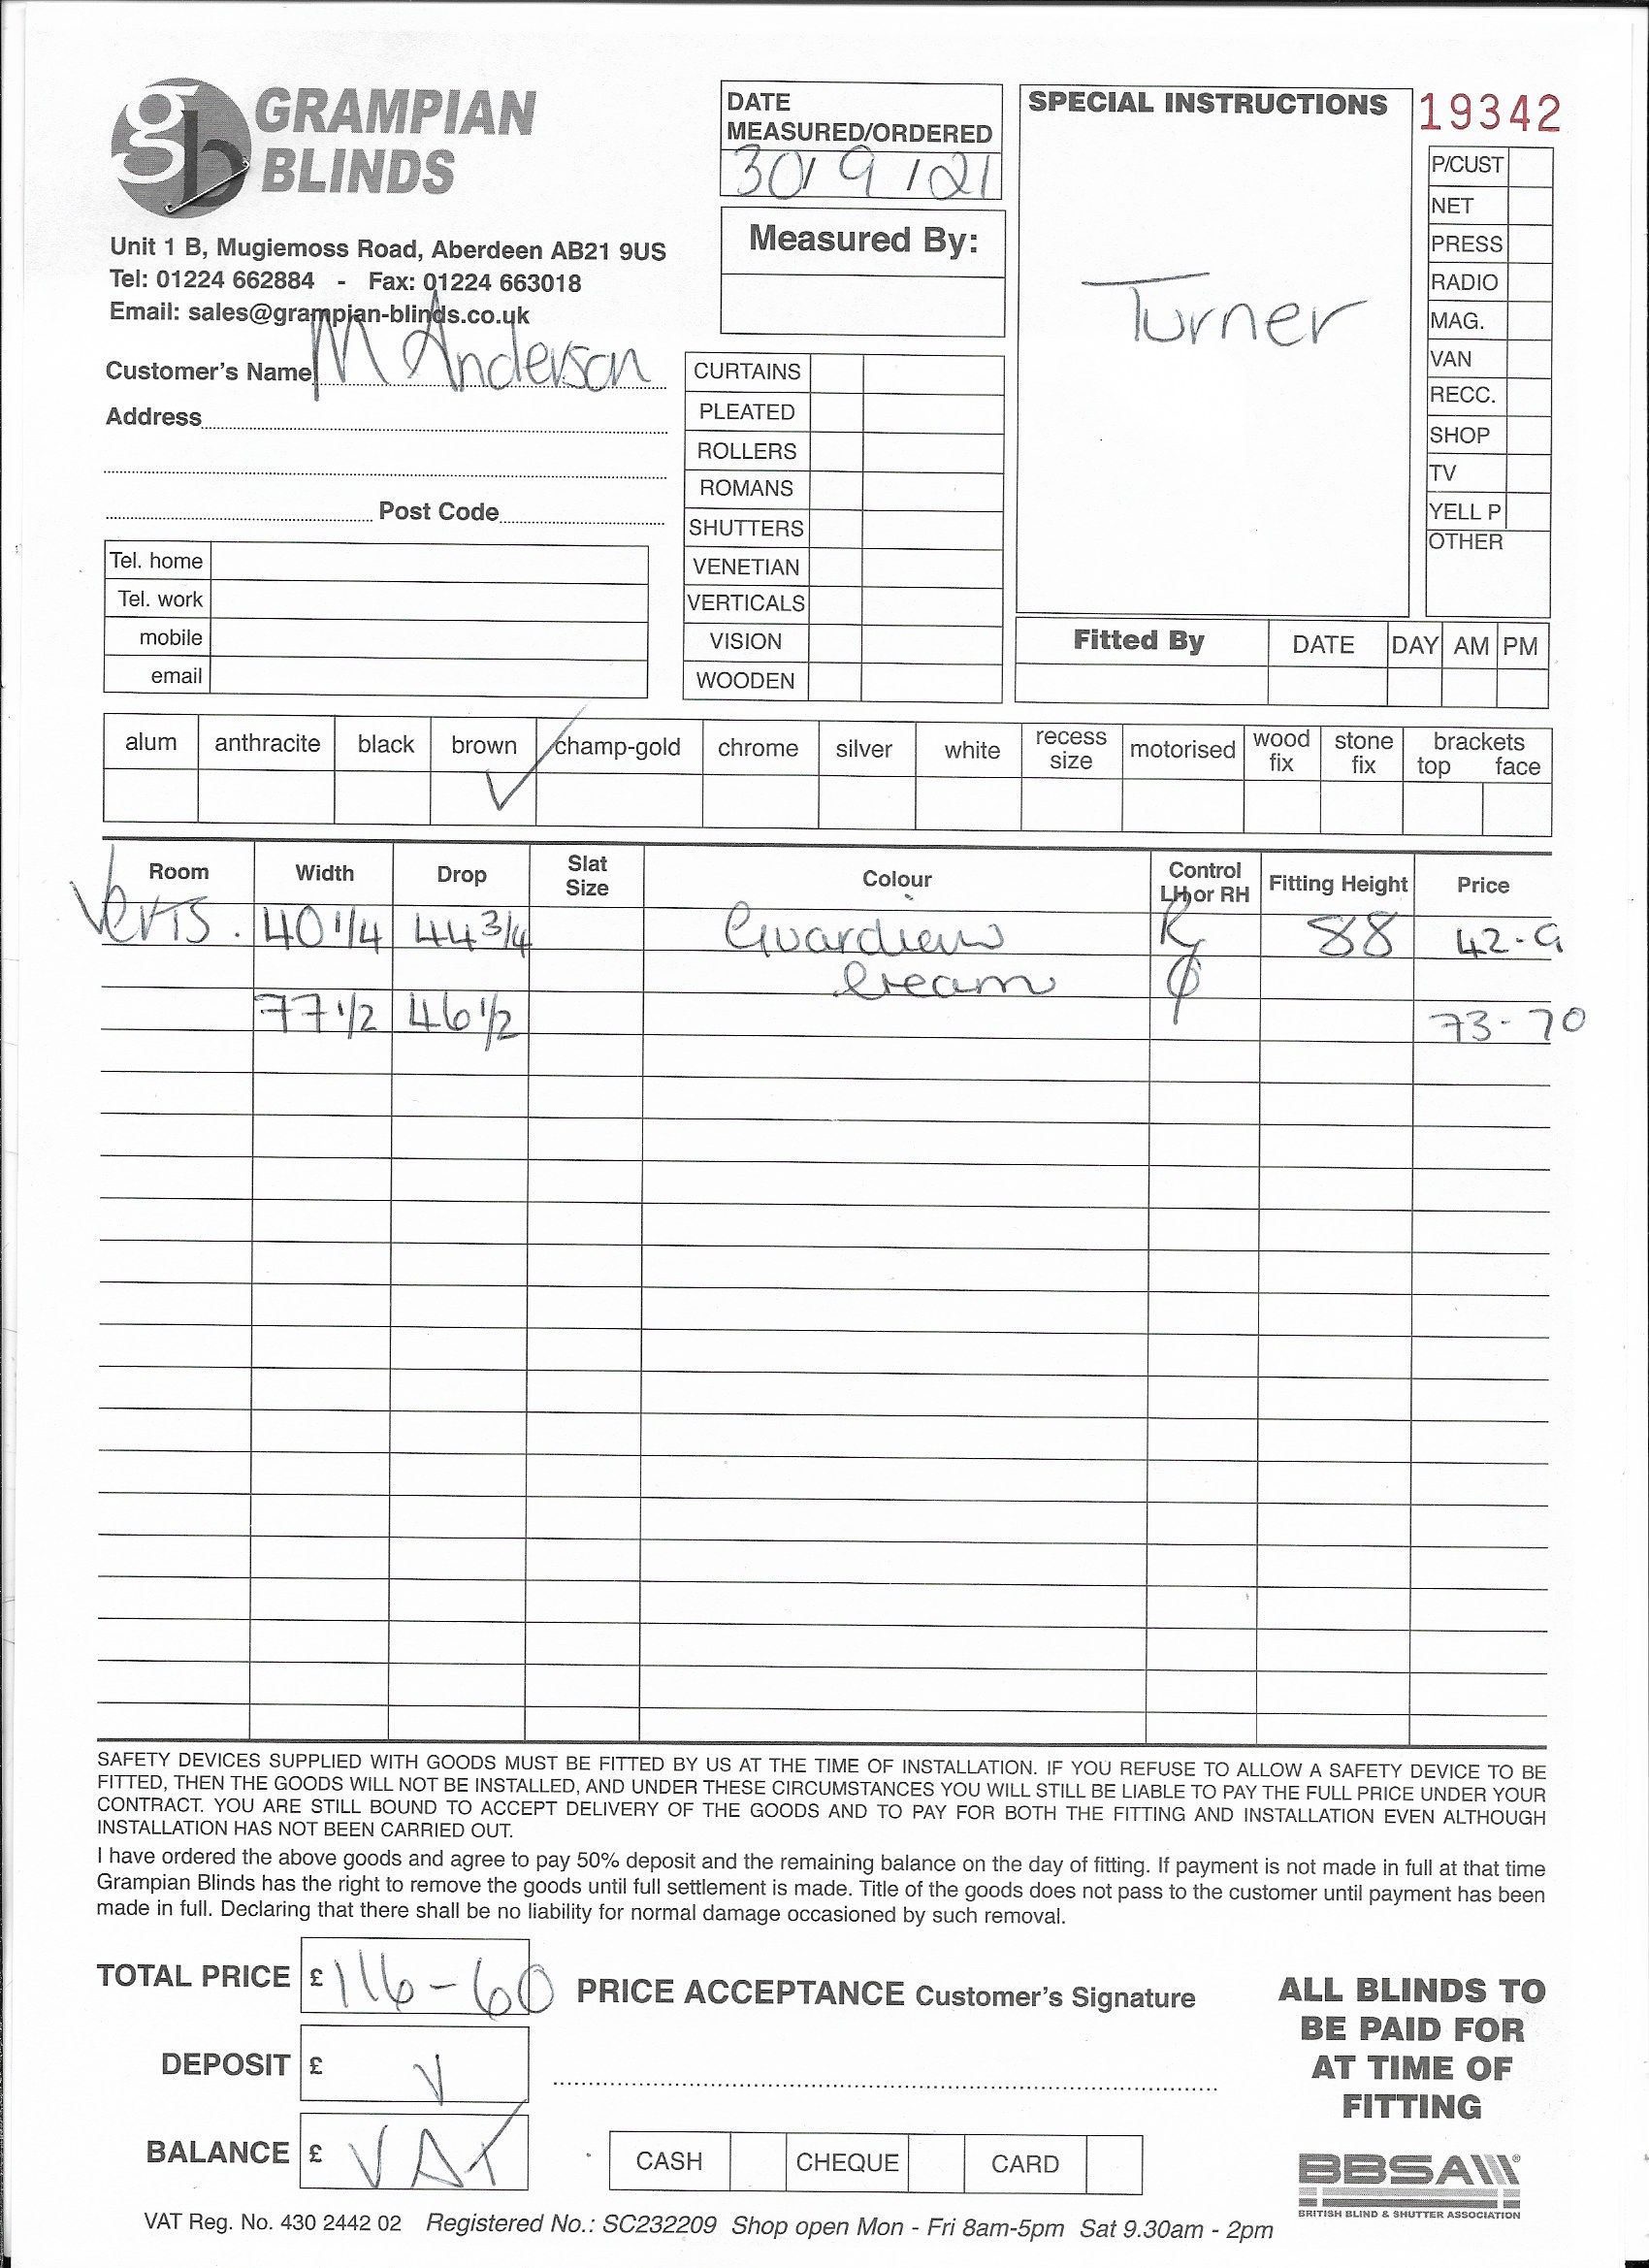 gb GRAMPIAN
BLINDS
Unit 1 B, Mugiemoss Road, Aberdeen AB21 9US
Tel: 01224 662884 - Fax: 01224 663018
Email: sales@grampian-blinds.co.uk
Customer's Name M Anderson
Address
Post Code
Tel. home
Tel. work
mobile
email
DATE
MEASURED/ORDERED
30/9/21
Measured By:
CURTAINS
PLEATED
ROLLERS
ROMANS
SHUTTERS
VENETIAN
VERTICALS
VISION
WOODEN
SPECIAL INSTRUCTIONS
Turner
19342
P/CUST
NET
PRESS
RADIO
MAG.
VAN
RECC.
SHOP
TV
YELL P
OTHER
Fitted By DATE DAY AM PM
alum anthracite black brown champ-gold chrome silver white recess size motorised wood fix stone fix brackets top face
Room Width Drop Slat Size Colour Control LH or RH Fitting Height Price
Verts. 40 1/4 44 3/4 Guardian R 88 42-9
Cream
77 1/2 46 1/2 73-70
SAFETY DEVICES SUPPLIED WITH GOODS MUST BE FITTED BY US AT THE TIME OF INSTALLATION. IF YOU REFUSE TO ALLOW A SAFETY DEVICE TO BE
FITTED, THEN THE GOODS WILL NOT BE INSTALLED, AND UNDER THESE CIRCUMSTANCES YOU WILL STILL BE LIABLE TO PAY THE FULL PRICE UNDER YOUR
CONTRACT. YOU ARE STILL BOUND TO ACCEPT DELIVERY OF THE GOODS AND TO PAY FOR BOTH THE FITTING AND INSTALLATION EVEN ALTHOUGH
INSTALLATION HAS NOT BEEN CARRIED OUT.
I have ordered the above goods and agree to pay 50% deposit and the remaining balance on the day of fitting. If payment is not made in full at that time
Grampian Blinds has the right to remove the goods until full settlement is made. Title of the goods does not pass to the customer until payment has been
made in full. Declaring that there shall be no liability for normal damage occasioned by such removal.
TOTAL PRICE £ 116-60
PRICE ACCEPTANCE Customer's Signature
DEPOSIT £
BALANCE £ VAT
CASH CHEQUE CARD
ALL BLINDS TO
BE PAID FOR
AT TIME OF
FITTING
BBSA
BRITISH BLIND & SHUTTER ASSOCIATION
VAT Reg. No. 430 2442 02 Registered No.: SC232209 Shop open Mon - Fri 8am-5pm Sat 9.30am - 2pm